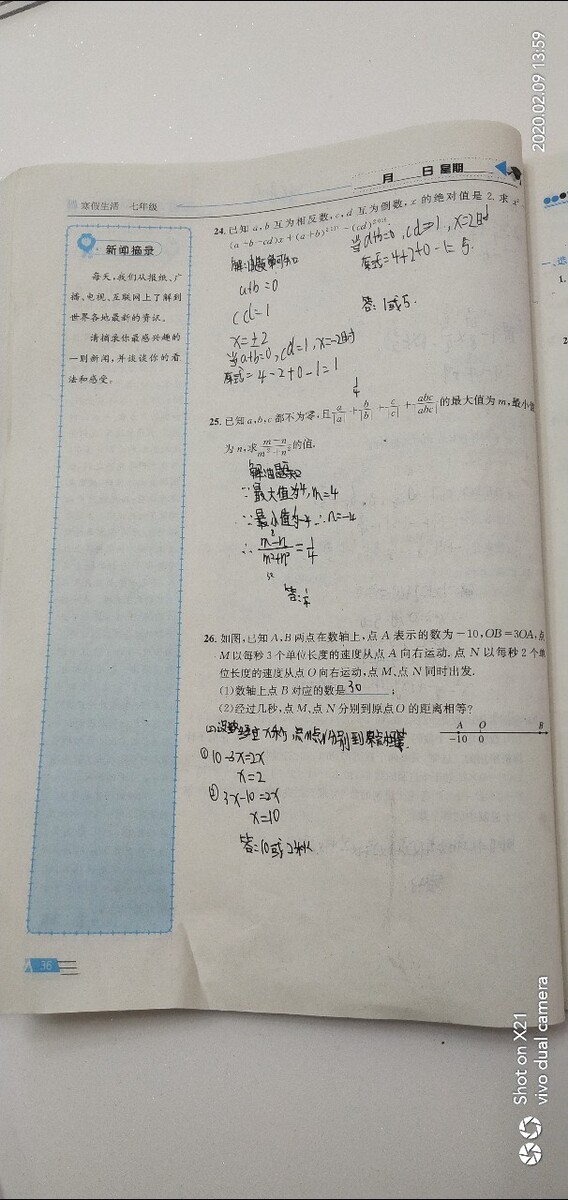 月 日 星期
寒假生活 七年级
新闻摘录
每天,我们从报纸、广
播、电视、互联网上了解到
世界各地最新的资讯。
请摘录你最感兴趣的
一则新闻,并谈谈你的看
法和感受。
24.已知a,b互为相反数,c,d互为倒数,x的绝对值是2,求x²
(a+b-cd)x+(a+b)
-(cd)
a+b=0
cd=1
x=±2
当a+b=0,cd=1,x=-2时
原式=4-2+0-1=1
当a+b=0,cd=1,x=2时
原式=4+2+0-1=5.
答:1或5.
25.已知a,b,c都不为零,且a/|a|+b/|b|+c/|c|+abc/|abc|的最大值为m,最小值
为n,求(m-n)/(m²+n²)的值.
∵最大值为4,m=4
∵最小值为-4∴n=-4
∴(m-n)/(m²+n²)=1/4
答:1/4
26.如图,已知A,B两点在数轴上,点A表示的数为-10,OB=3OA,点
M以每秒3个单位长度的速度从点A向右运动.点N以每秒2个单
位长度的速度从点O向右运动,点M、点N同时出发.
(1)数轴上点B对应的数是30;
(2)经过几秒,点M、点N分别到原点O的距离相等?
A O B
-10 0
①10-3x=2x
x=2
②3x-10=2x
x=10
答:10或2秒
36
2020.02.09 13:59
Shot on X21
vivo dual camera